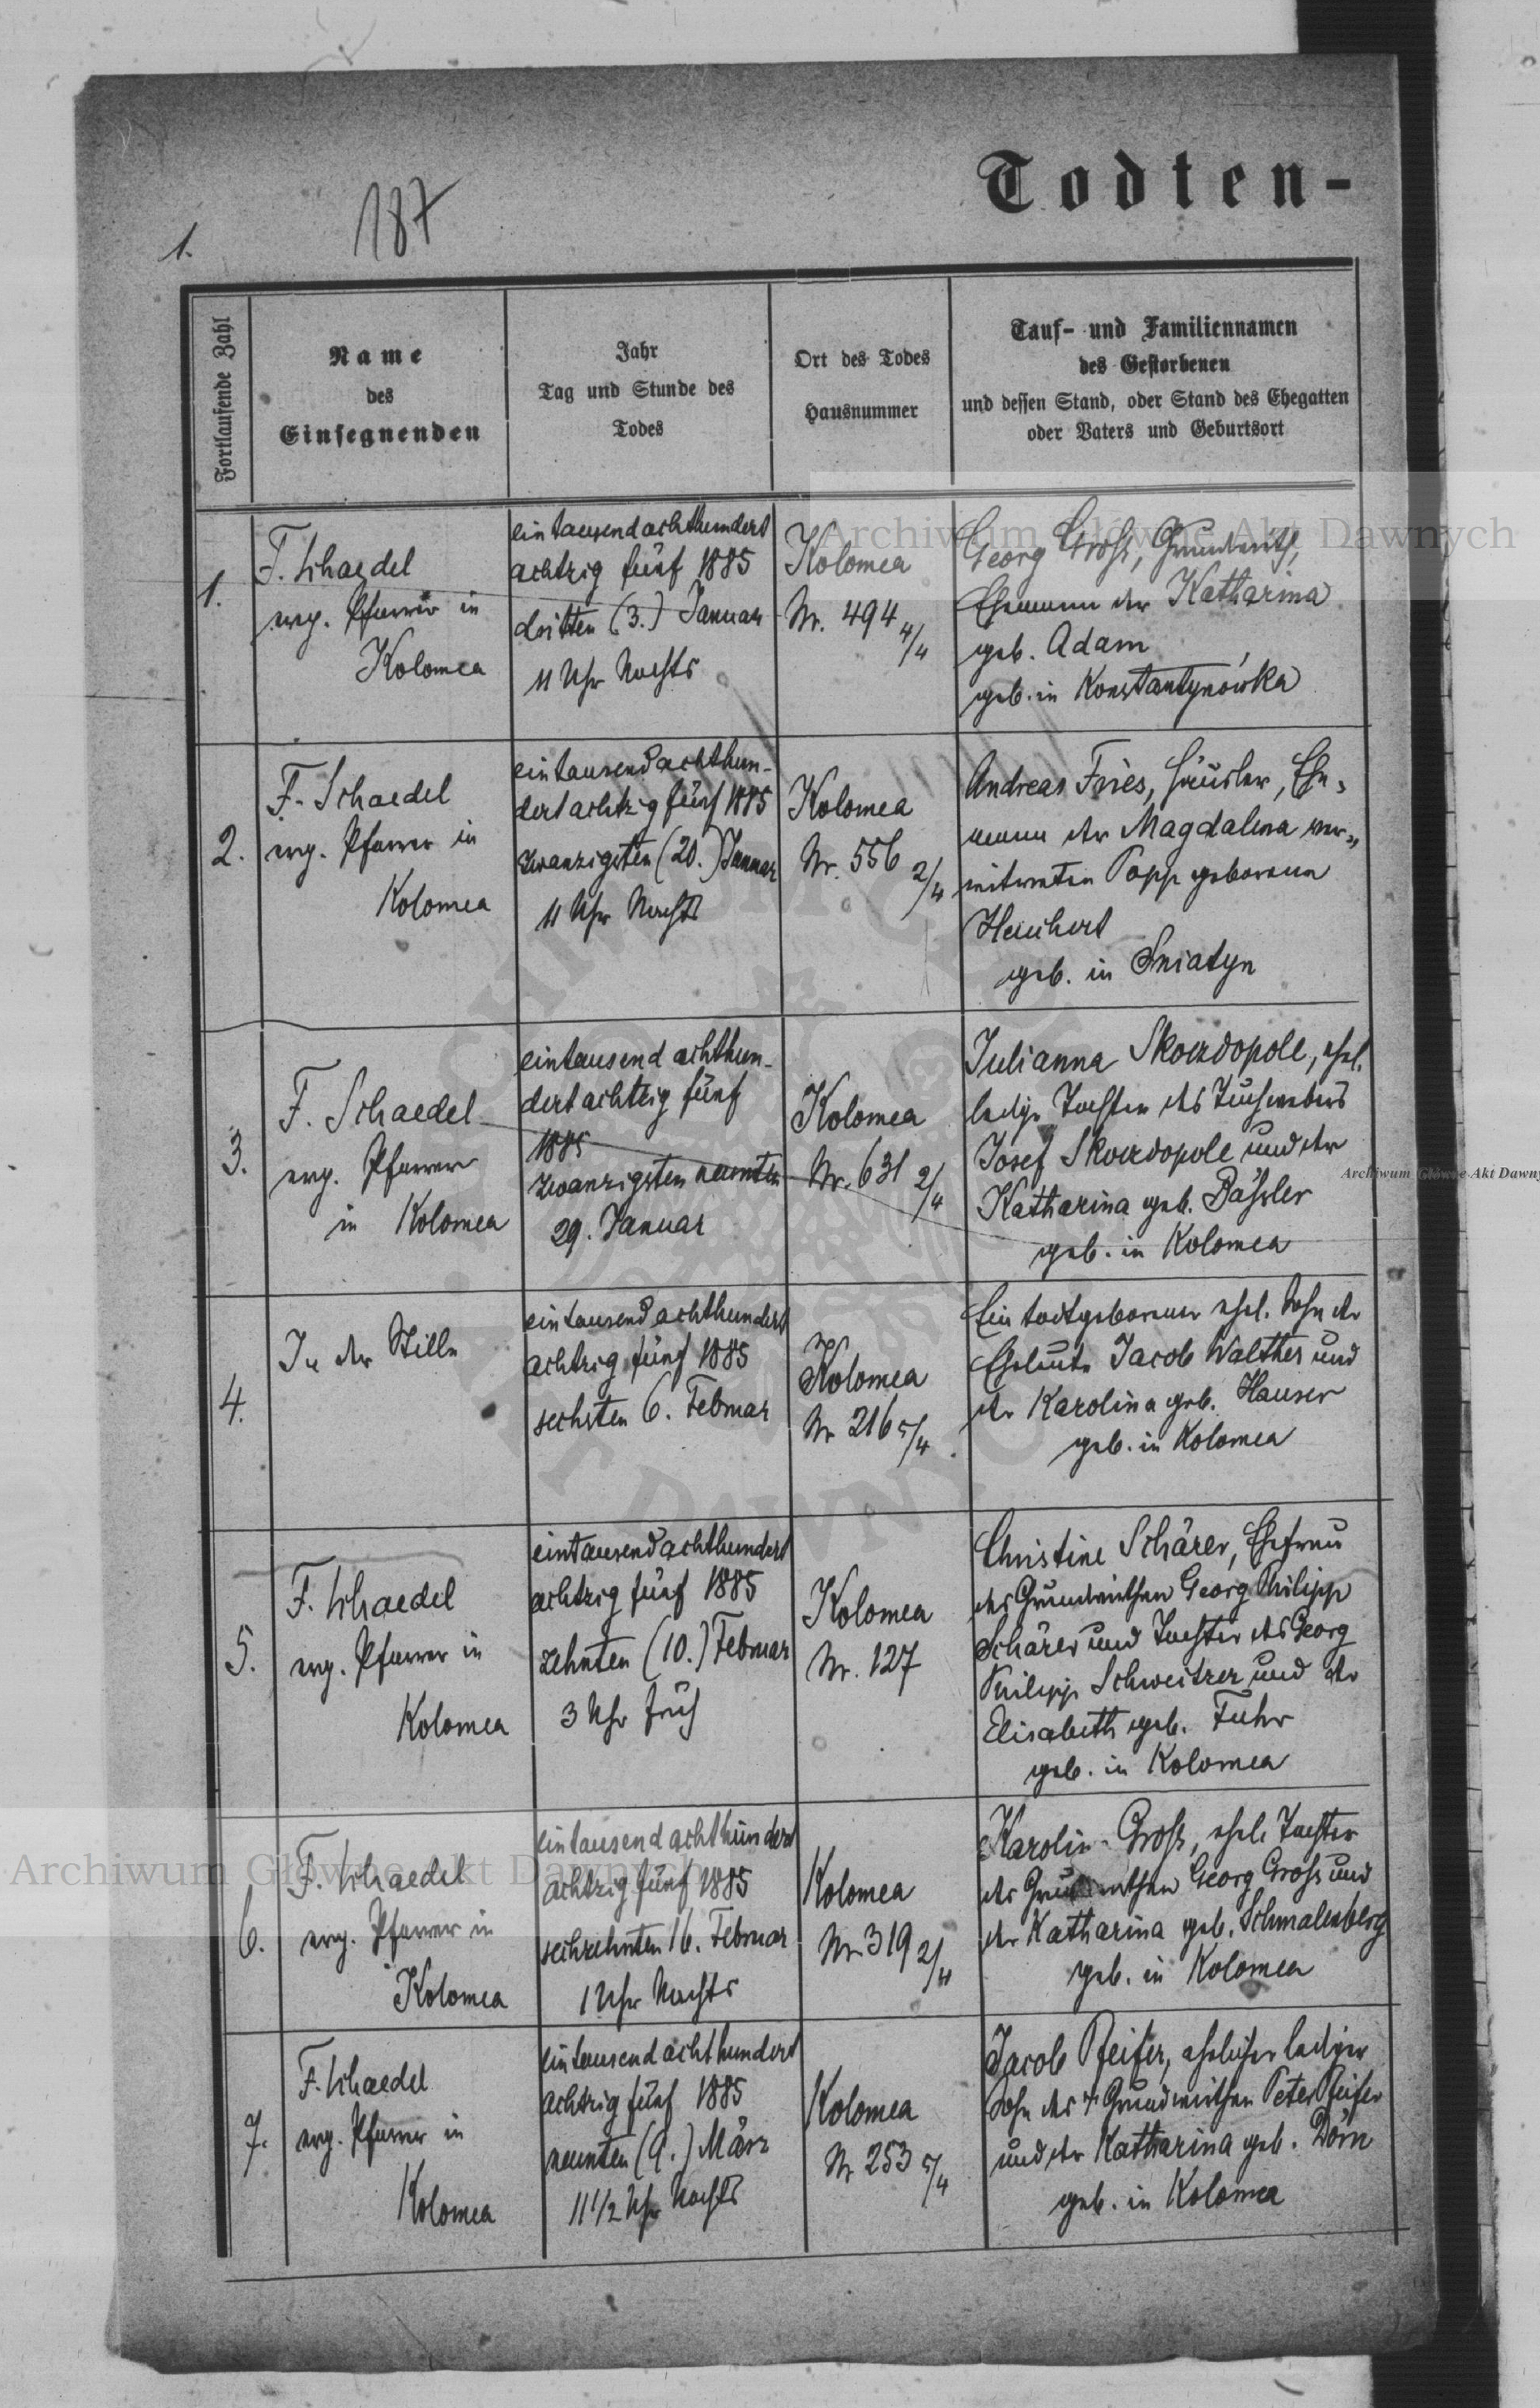 Todten-
187
1.
Fortlaufende Zahl
Name
des
Einsegnenden
Jahr
Tag und Stunde des
Todes
Ort des Todes
Hausnummer
Tauf- und Familiennamen
des Gestorbenen
und dessen Stand, oder Stand des Ehegatten
oder Vaters und Geburtsort
1.
F. Schaedel
evg. Pfarrer in
Kolomea
eintausendachthundert
achtzig fünf 1885
dritten (3.) Januar
11 Uhr Nachts
Kolomea
Nr. 494 4/4
Georg Gross, Grundwirth,
Ehemann der Katharina
geb. Adam
geb. in Konstantynówka
2.
F. Schaedel
evg. Pfarrer in
Kolomea
eintausendachthun-
dertachtzig fünf 1885
zwanzigsten (20.) Januar
11 Uhr Nachts
Kolomea
Nr. 556 2/4
Andreas Fries, Häusler, Ehe-
mann der Magdalena ver-
witweten Popp geborene
geb. in Sniatyn
3.
F. Schaedel
evg. Pfarrer
in Kolomea
eintausend achthun-
dertachtzig fünf
1885
zwanzigsten neunten
29. Januar
Kolomea
Nr. 631 2/4
Julianna Skowdopole, ehel.
ledige Tochter des
Josef Skowdopole und der
Katharina geb. Bässler
geb. in Kolomea
4.
In der Stille
eintausendachthundert
achtzig fünf 1885
sechsten 6. Februar
Kolomea
Nr 216 5/4
Ein todtgeborener ehel. Sohn der
Eheleute Jacob Walther und
der Karolina geb. Hauser
geb. in Kolomea
5.
F. Schaedel
evg. Pfarrer in
Kolomea
eintausendachthundert
achtzig fünf 1885
zehnten (10.) Februar
3 Uhr früh
Kolomea
Nr. 127
Christine Schärer, Ehefrau
des Grundwirthen Georg Philipp
Schärer und Tochter des Georg
Philipp Schweitzer und der
Elisabeth geb. Fuhr
geb. in Kolomea
6.
F. Schaedel
evg. Pfarrer in
Kolomea
eintausend achthundert
achtzig fünf 1885
sechzehnten 16. Februar
1 Uhr Nachts
Kolomea
Nr. 319 2/4
Karolin- Gross, ehel. Tochter
des Grundwirthen Georg Gross und
der Katharina geb. Schmalenberg
geb. in Kolomea
7.
F. Schaedel
evg. Pfarrer in
Kolomea
eintausend achthundert
achtzig fünf 1885
neunten (9.) März
11 1/2 Uhr Nachts
Kolomea
Nr 253 5/4
Jacob Pfeifer, ehelicher lediger
Sohn des † Grundwirthen Peter Pfeifer
und der Katharina geb. Dörn
geb. in Kolomea
Archiwum Główne Akt Dawnych
Archiwum Główne Akt Dawnych
Archiwum Główne Akt Dawny